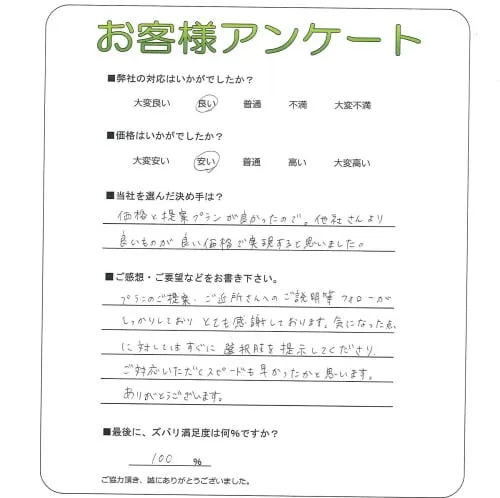 お客様アンケート
■弊社の対応はいかがでしたか？
大変良い 良い 普通 不満 大変不満
■価格はいかがでしたか？
大変安い 安い 普通 高い 大変高い
■当社を選んだ決め手は？
価格と提案プランが良かったので。他社さんより
良いものが良い価格で実現すると思いました。
■ご感想・ご要望などをお書き下さい。
プランのご提案・ご近所さんへのご説明等フォローが
しっかりしており とても感謝しております。気になった点
に対してはすぐに 選択肢を提示してくださり、
ご対応いただくスピードも早かったかと思います。
ありがとうございます。
■最後に、ズバリ満足度は何%ですか？
100 %
ご協力頂き、誠にありがとうございました。